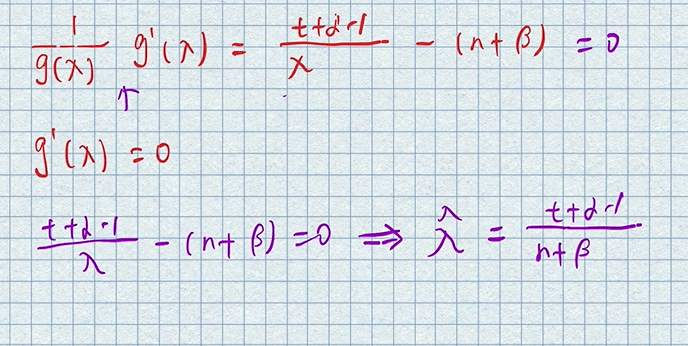 1/g(λ) g'(λ) = (t+α-1)/λ - (n+β) = 0
↑
g'(λ) = 0
(t+α-1)/λ - (n+β) = 0 ⇒ λ̂ = (t+α-1)/(n+β)